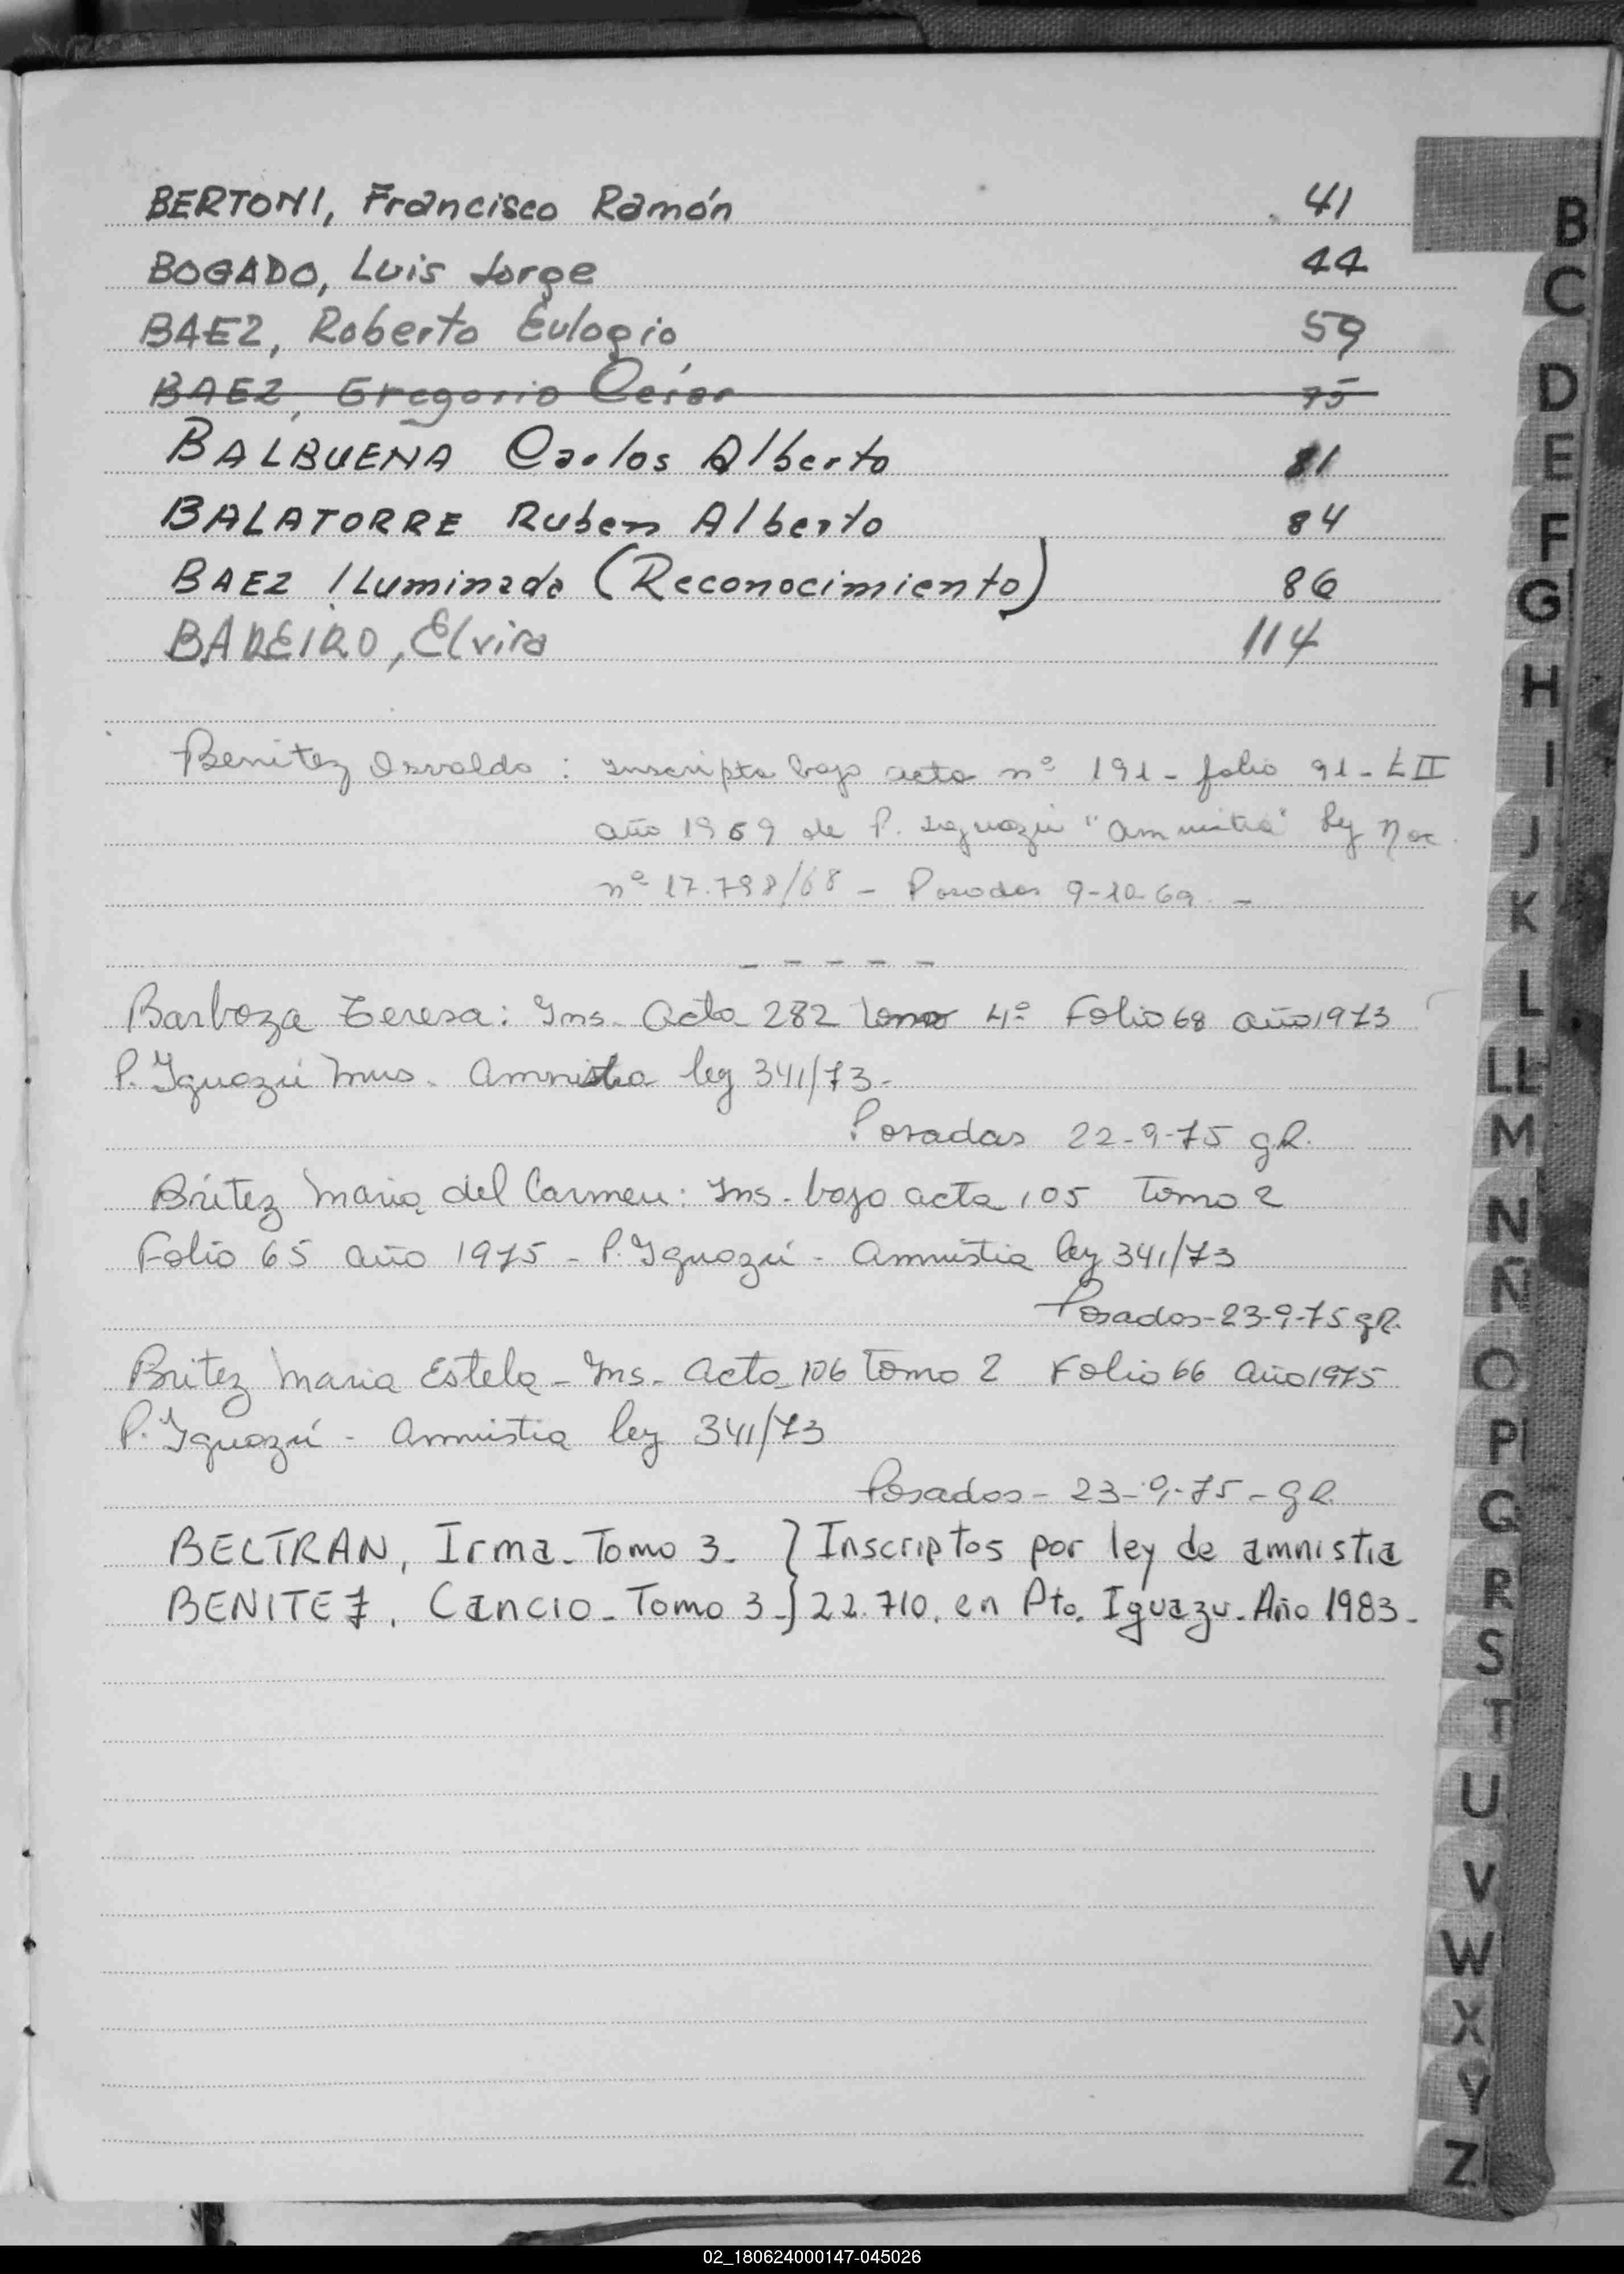 BERTONI, Francisco Ramón 41
BOGADO, Luis Jorge 44
BAEZ, Roberto Eulogio 59
BAEZ, Gregorio César 75
BALBUENA Carlos Alberto 81
BALATORRE Ruben Alberto 84
BAEZ Iluminada (Reconocimiento) 86
BAREIRO, Elvira 114
Benitez Osvaldo : inscripto bajo acta nº 191 - folio 91 - t II
año 1969 de P. Iguazú "amnistia" ley Nac.
nº 17.798/68 - Posadas 9-10-69 -
- - - - -
Barboza Teresa: Ins. Acta 282 tomo 4º Folio 68 año 1973
P. Iguazú Mnes. Amnistia ley 341/73-
Posadas 22-9-75 gR.
Britez Maria del Carmen: Ins. bajo acta 105 Tomo 2
Folio 65 año 1975 - P. Iguazú - Amnistia ley 341/73
Posadas - 23-9-75 gR.
Britez Maria Estela - Ins. Acta 106 Tomo 2 Folio 66 año 1975
P. Iguazú - Amnistia ley 341/73
Posadas - 23-9-75 - gR
BELTRAN, Irma - Tomo 3 - } Inscriptos por ley de amnistia
BENITEZ, Cancio - Tomo 3 - } 22.710. en Pto. Iguazu - Año 1983 -
B
C
D
E
F
G
H
I
J
K
L
LL
M
N
Ñ
O
P
Q
R
S
T
U
V
W
X
Y
Z
02_180624000147-045026